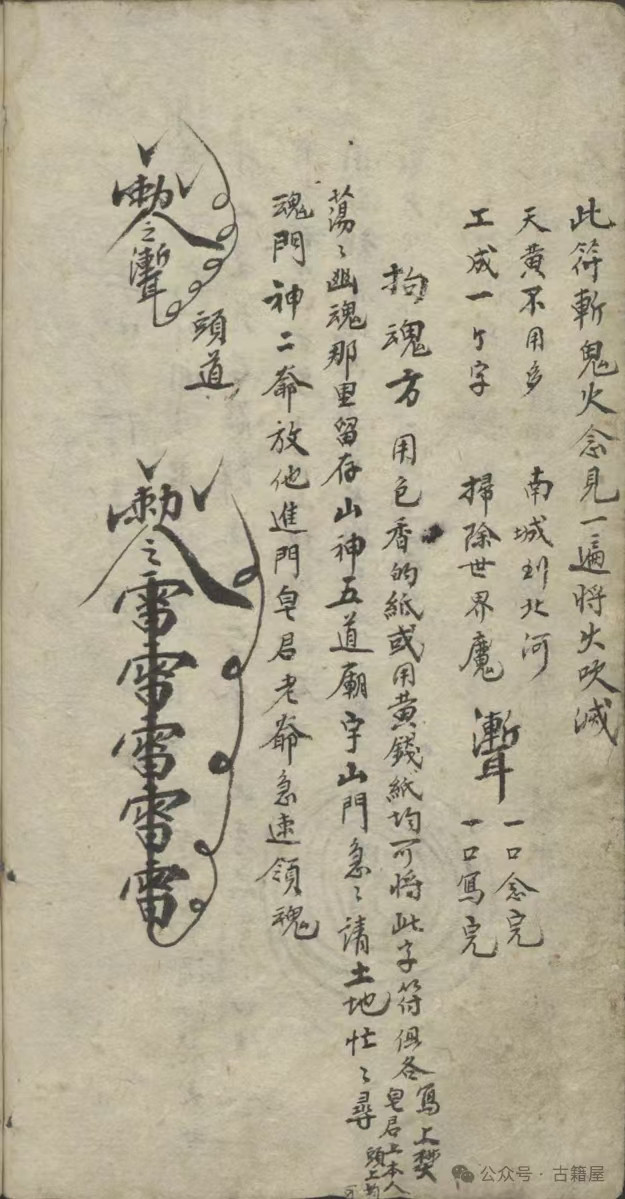 此符斬鬼火念見一遍將火吹滅
天黄不用多 南城到北河 一口念完
工成一个字 掃除世界魔 聻 一口寫完
拘魂方 用包香的紙或用黄錢紙均可將此字符俱各寫上焚
皂君上本人
頭上
蕩〻幽魂那里留存山神五道廟宇山門急〻請土地忙〻尋
魂門神二爺放他進門皂君老爺急速領魂
頭道
勅令
之
聻
勅令
之
雷
雷
雷
雷
雷
公众号·古籍屋